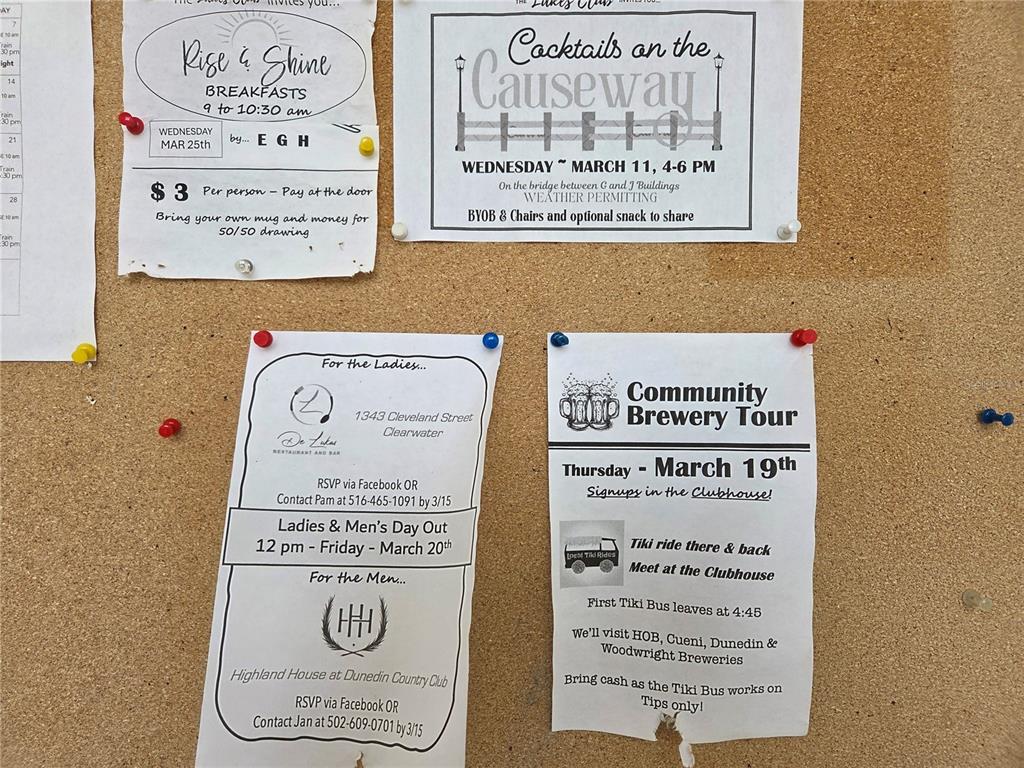 The Lakes Club invites you...
Rise & Shine
BREAKFASTS
9 to 10:30 am
WEDNESDAY
MAR 25th
by... E G H
$ 3 Per person – Pay at the door
Bring your own mug and money for
50/50 drawing
THE Lakes Club INVITES YOU...
Cocktails on the
Causeway
WEDNESDAY ~ MARCH 11, 4-6 PM
On the bridge between G and J Buildings
WEATHER PERMITTING
BYOB & Chairs and optional snack to share
7
14
21
28
For the Ladies...
L
De Lukas
RESTAURANT AND BAR
1343 Cleveland Street
Clearwater
RSVP via Facebook OR
Contact Pam at 516-465-1091 by 3/15
Ladies & Men's Day Out
12 pm - Friday - March 20th
For the Men...
HH
Highland House at Dunedin Country Club
RSVP via Facebook OR
Contact Jan at 502-609-0701 by 3/15
Community
Brewery Tour
Thursday - March 19th
Signups in the Clubhouse!
Local Tiki Rides
Tiki ride there & back
Meet at the Clubhouse
First Tiki Bus leaves at 4:45
We'll visit HOB, Cueni, Dunedin &
Woodwright Breweries
Bring cash as the Tiki Bus works on
Tips only!